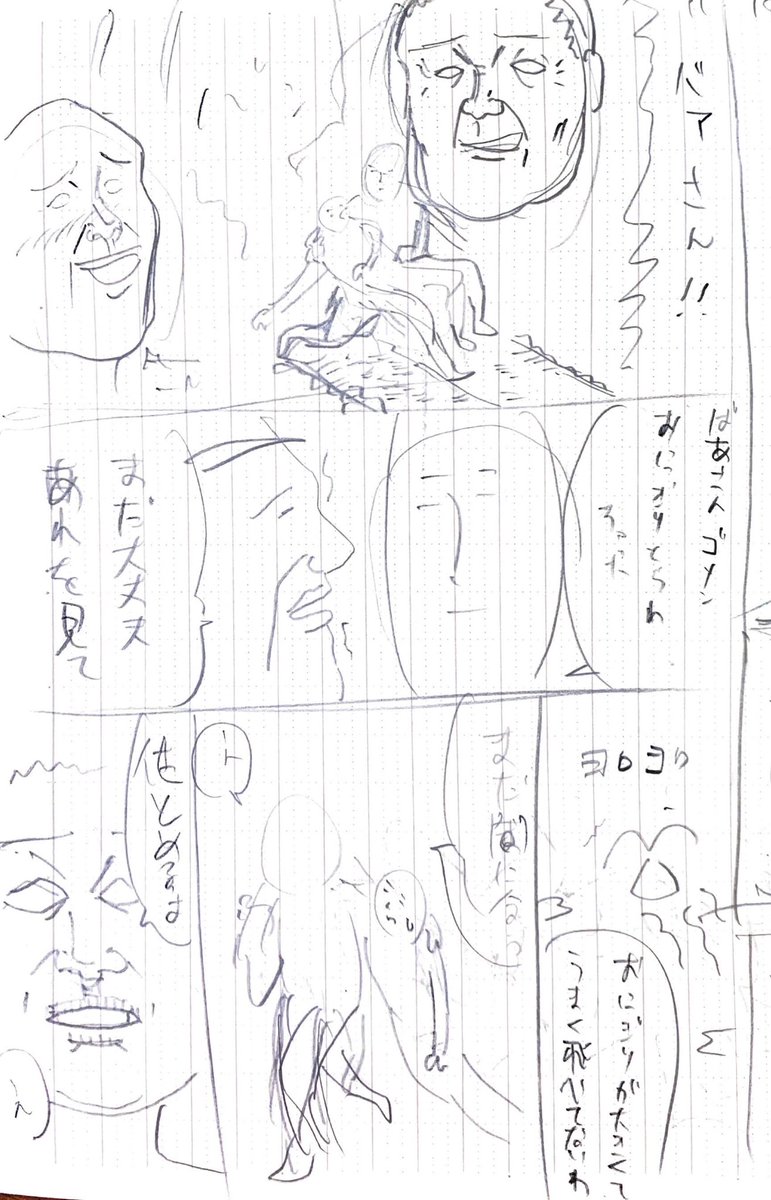 バアさん!!
ばあさんゴメン
おにぎりとられ
ちゃった
まだ大丈夫
あれを見て
ヨロヨロ
おにぎりが大きくて
うまく飛べてないわ
まだ間に合う